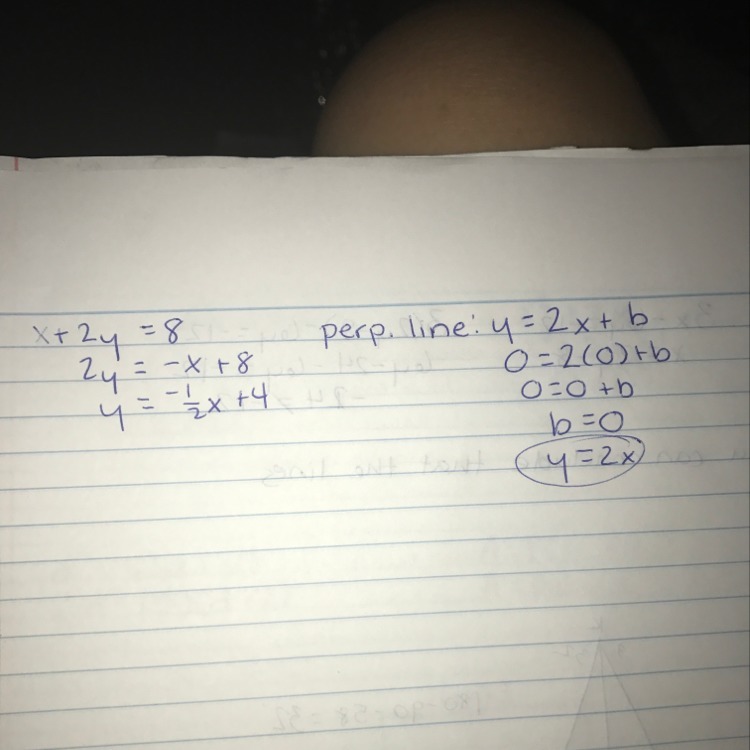 x + 2y = 8
2y = -x + 8
y = -1/2x + 4
perp. line: y = 2x + b
0 = 2(0) + b
0 = 0 + b
b = 0
y = 2x